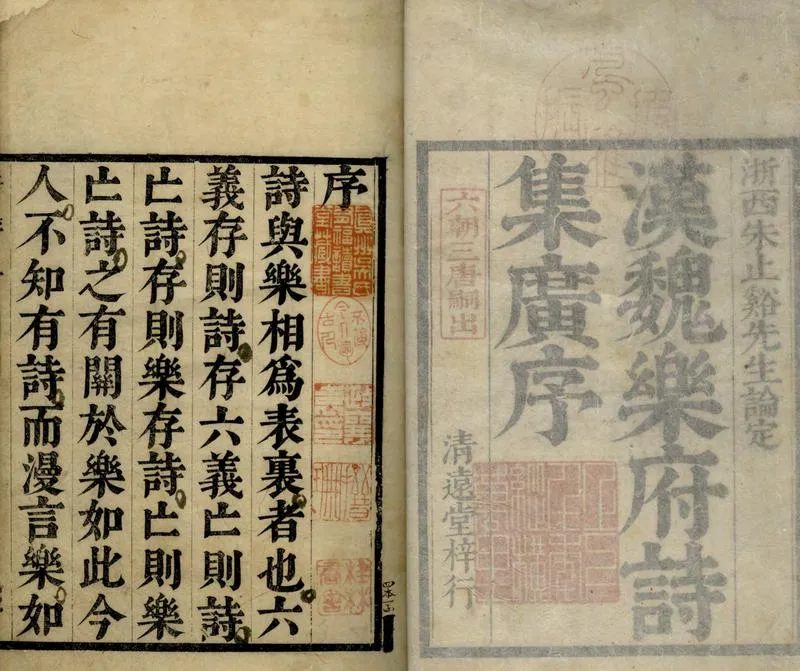 浙西朱止谿先生論定
漢魏樂府詩
集廣序
六朝三唐嗣出
清遠堂梓行
序
詩與樂相為表裏者也六
義存則詩存六義亡則詩
亡詩存則樂存詩亡則樂
亡詩之有關於樂如此今
人不知有詩而漫言樂如